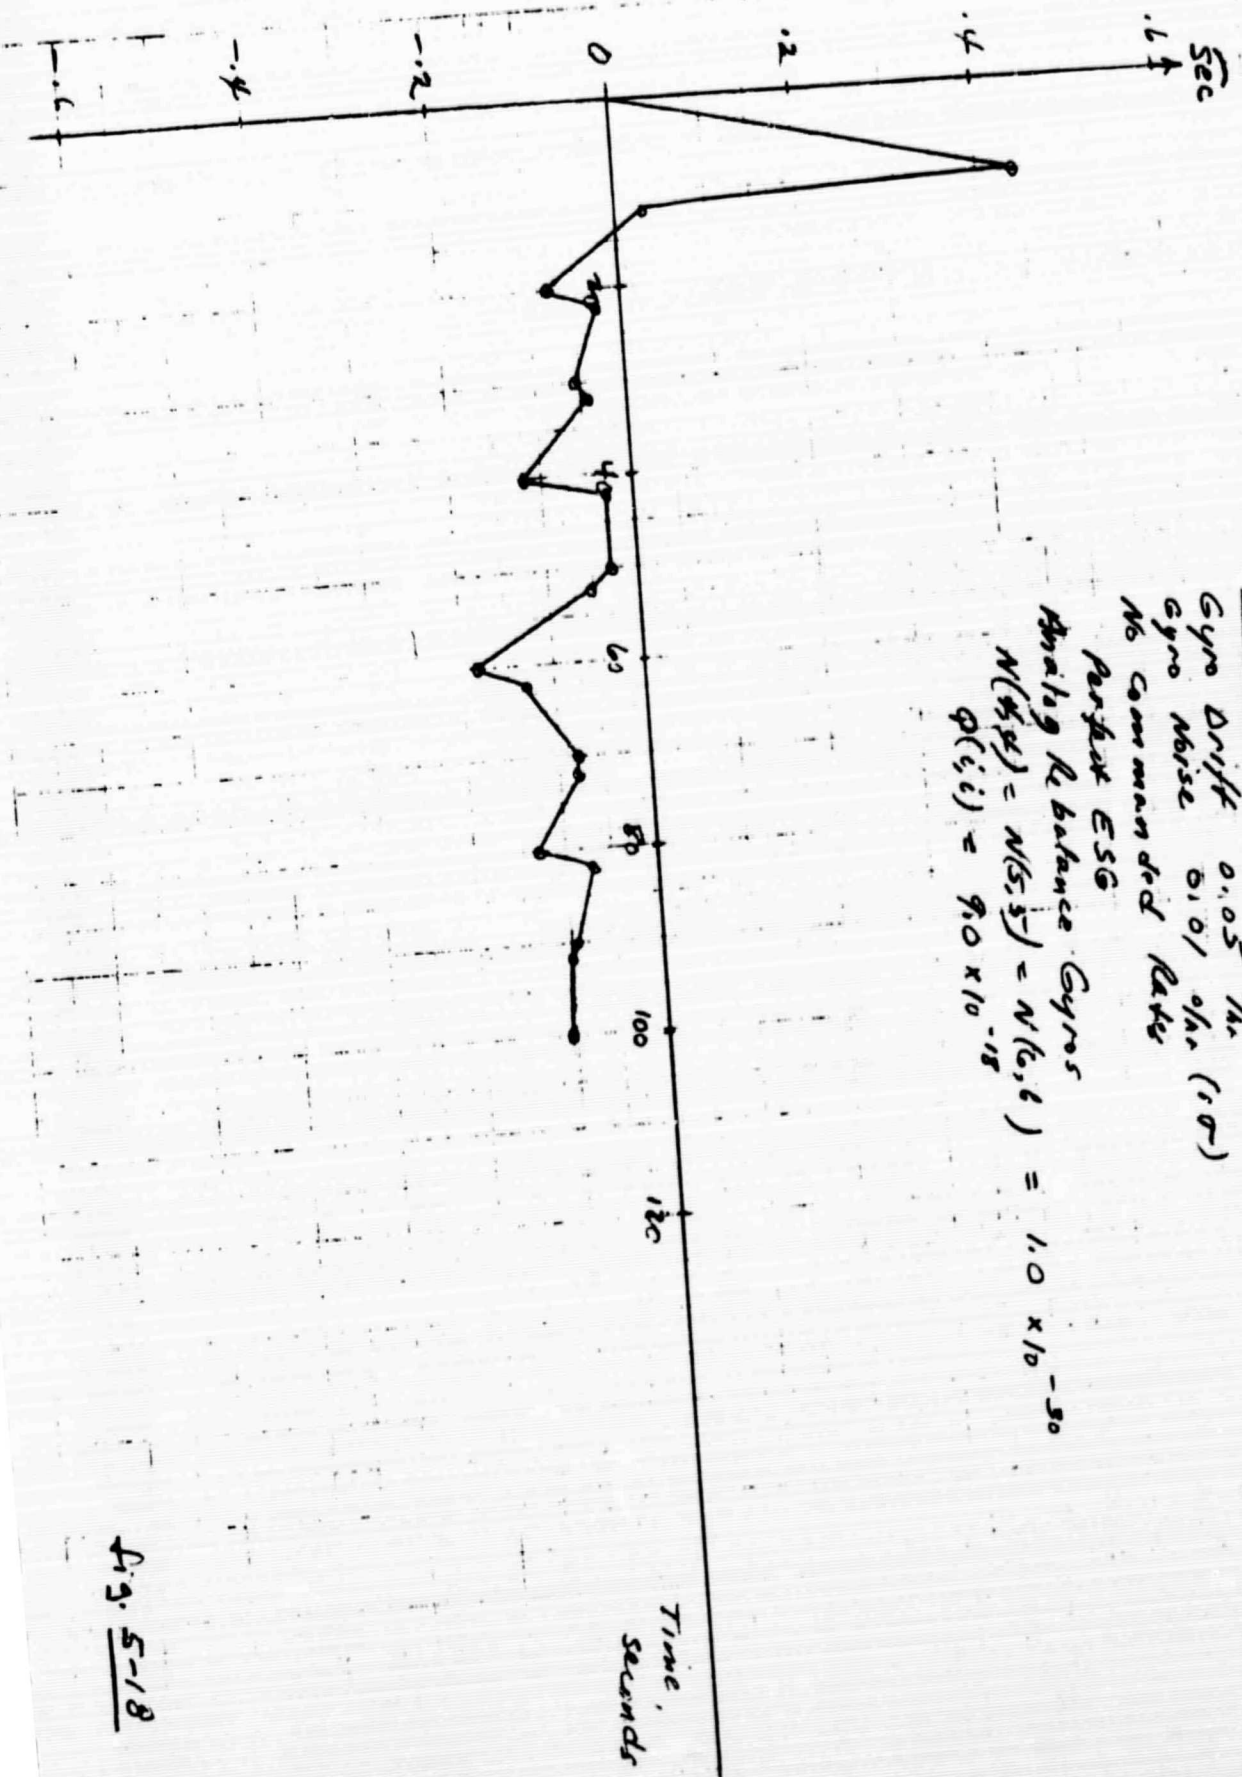 Sec
.6
.4
.2
0
-.2
-.4
-.6
20
40
60
80
100
120
Time,
seconds
Gyro Drift 0.05 /hr
Gyro Noise 0.01 °/hr (1σ)
No commanded Rates
Perfect ESG
Analog Rebalance Gyros
N(4,4) = N(5,5) = N(6,6) = 1.0 x 10 -30
Q(i,i) = 9.0 x 10 -18
fig. 5-18